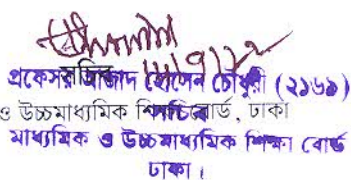 প্রফেসর আজাদ হোসেন চৌধুরী (২১৬৯)
সচিব
ও উচ্চমাধ্যমিক শিক্ষা বোর্ড, ঢাকা
মাধ্যমিক ও উচ্চ মাধ্যমিক শিক্ষা বোর্ড
ঢাকা।